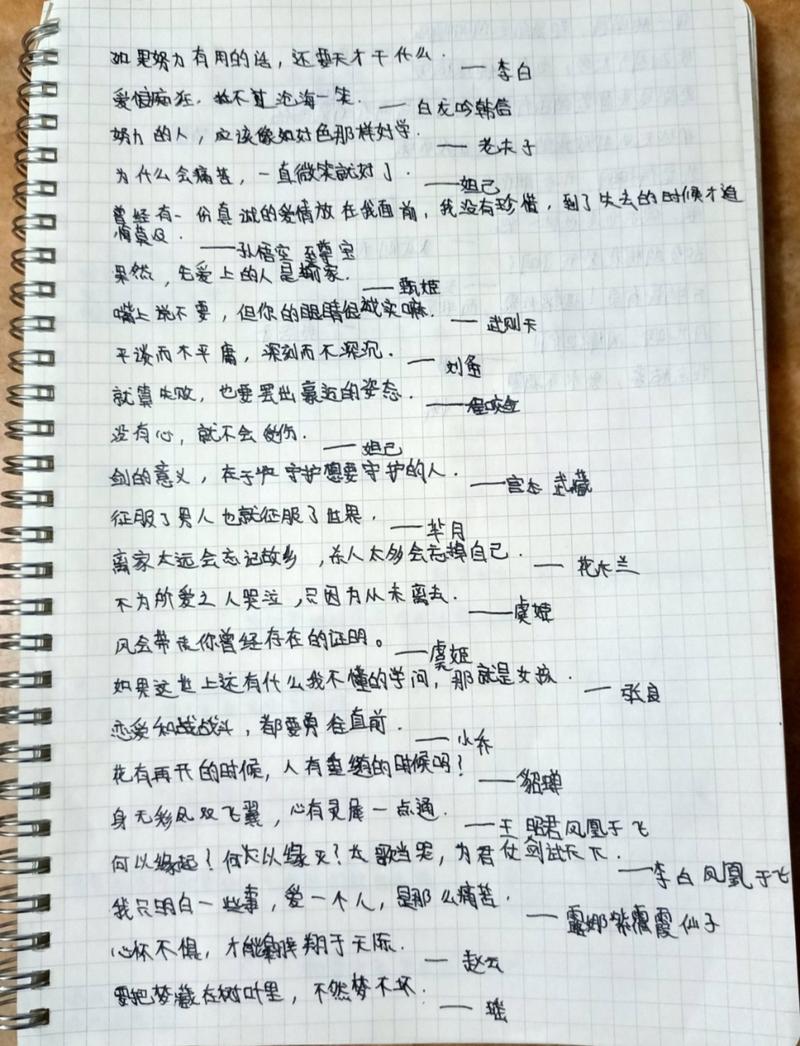 如果努力有用的话，还要天才干什么. —— 李白
爱恨痴狂，敌不过沧海一笑. —— 白龙吟韩信
努力的人，应该像如好色那样好学. —— 老夫子
为什么会痛苦，一直微笑就好了. ——妲己
曾经有一份真诚的爱情放在我面前，我没有珍惜，到了失去的时候才追
悔莫及. ——孙悟空 至尊宝
果然，先爱上的人是输家. ——甄姬
嘴上说不要，但你的眼睛很诚实嘛. ——武则天
平淡而不平庸，深刻而不深沉. —— 刘备
就算失败，也要罢出豪迈的姿态. ——程咬金
没有心，就不会受伤. —— 妲己
剑的意义，在于守护想要守护的人. ——宫本 武藏
征服了男人也就征服了世界. ——芈月
离家太远会忘记故乡，杀人太多会忘掉自己. —— 花木兰
不为所爱之人哭泣，只因为从未离去. ——虞姬
风会带走你曾经存在的证明。——虞姬
如果这世上还有什么我不懂的学问，那就是女孩. —— 张良
恋爱和战战斗，都要勇往直前. —— 小乔
花有再开的时候，人有重逢的时候吗？——貂蝉
身无彩凤双飞翼，心有灵犀一点通. ——王昭君凤凰于飞
何以缘起？何以缘灭？长歌当哭，为君仗剑试天下. ——李白凤凰于飞
我只明白一些事，爱一个人，是那么痛苦. —— 露娜紫霞仙子
心怀不惧，才能翱翔于天际. —— 赵云
要把梦藏在树叶里，不然梦不坏. —— 瑶